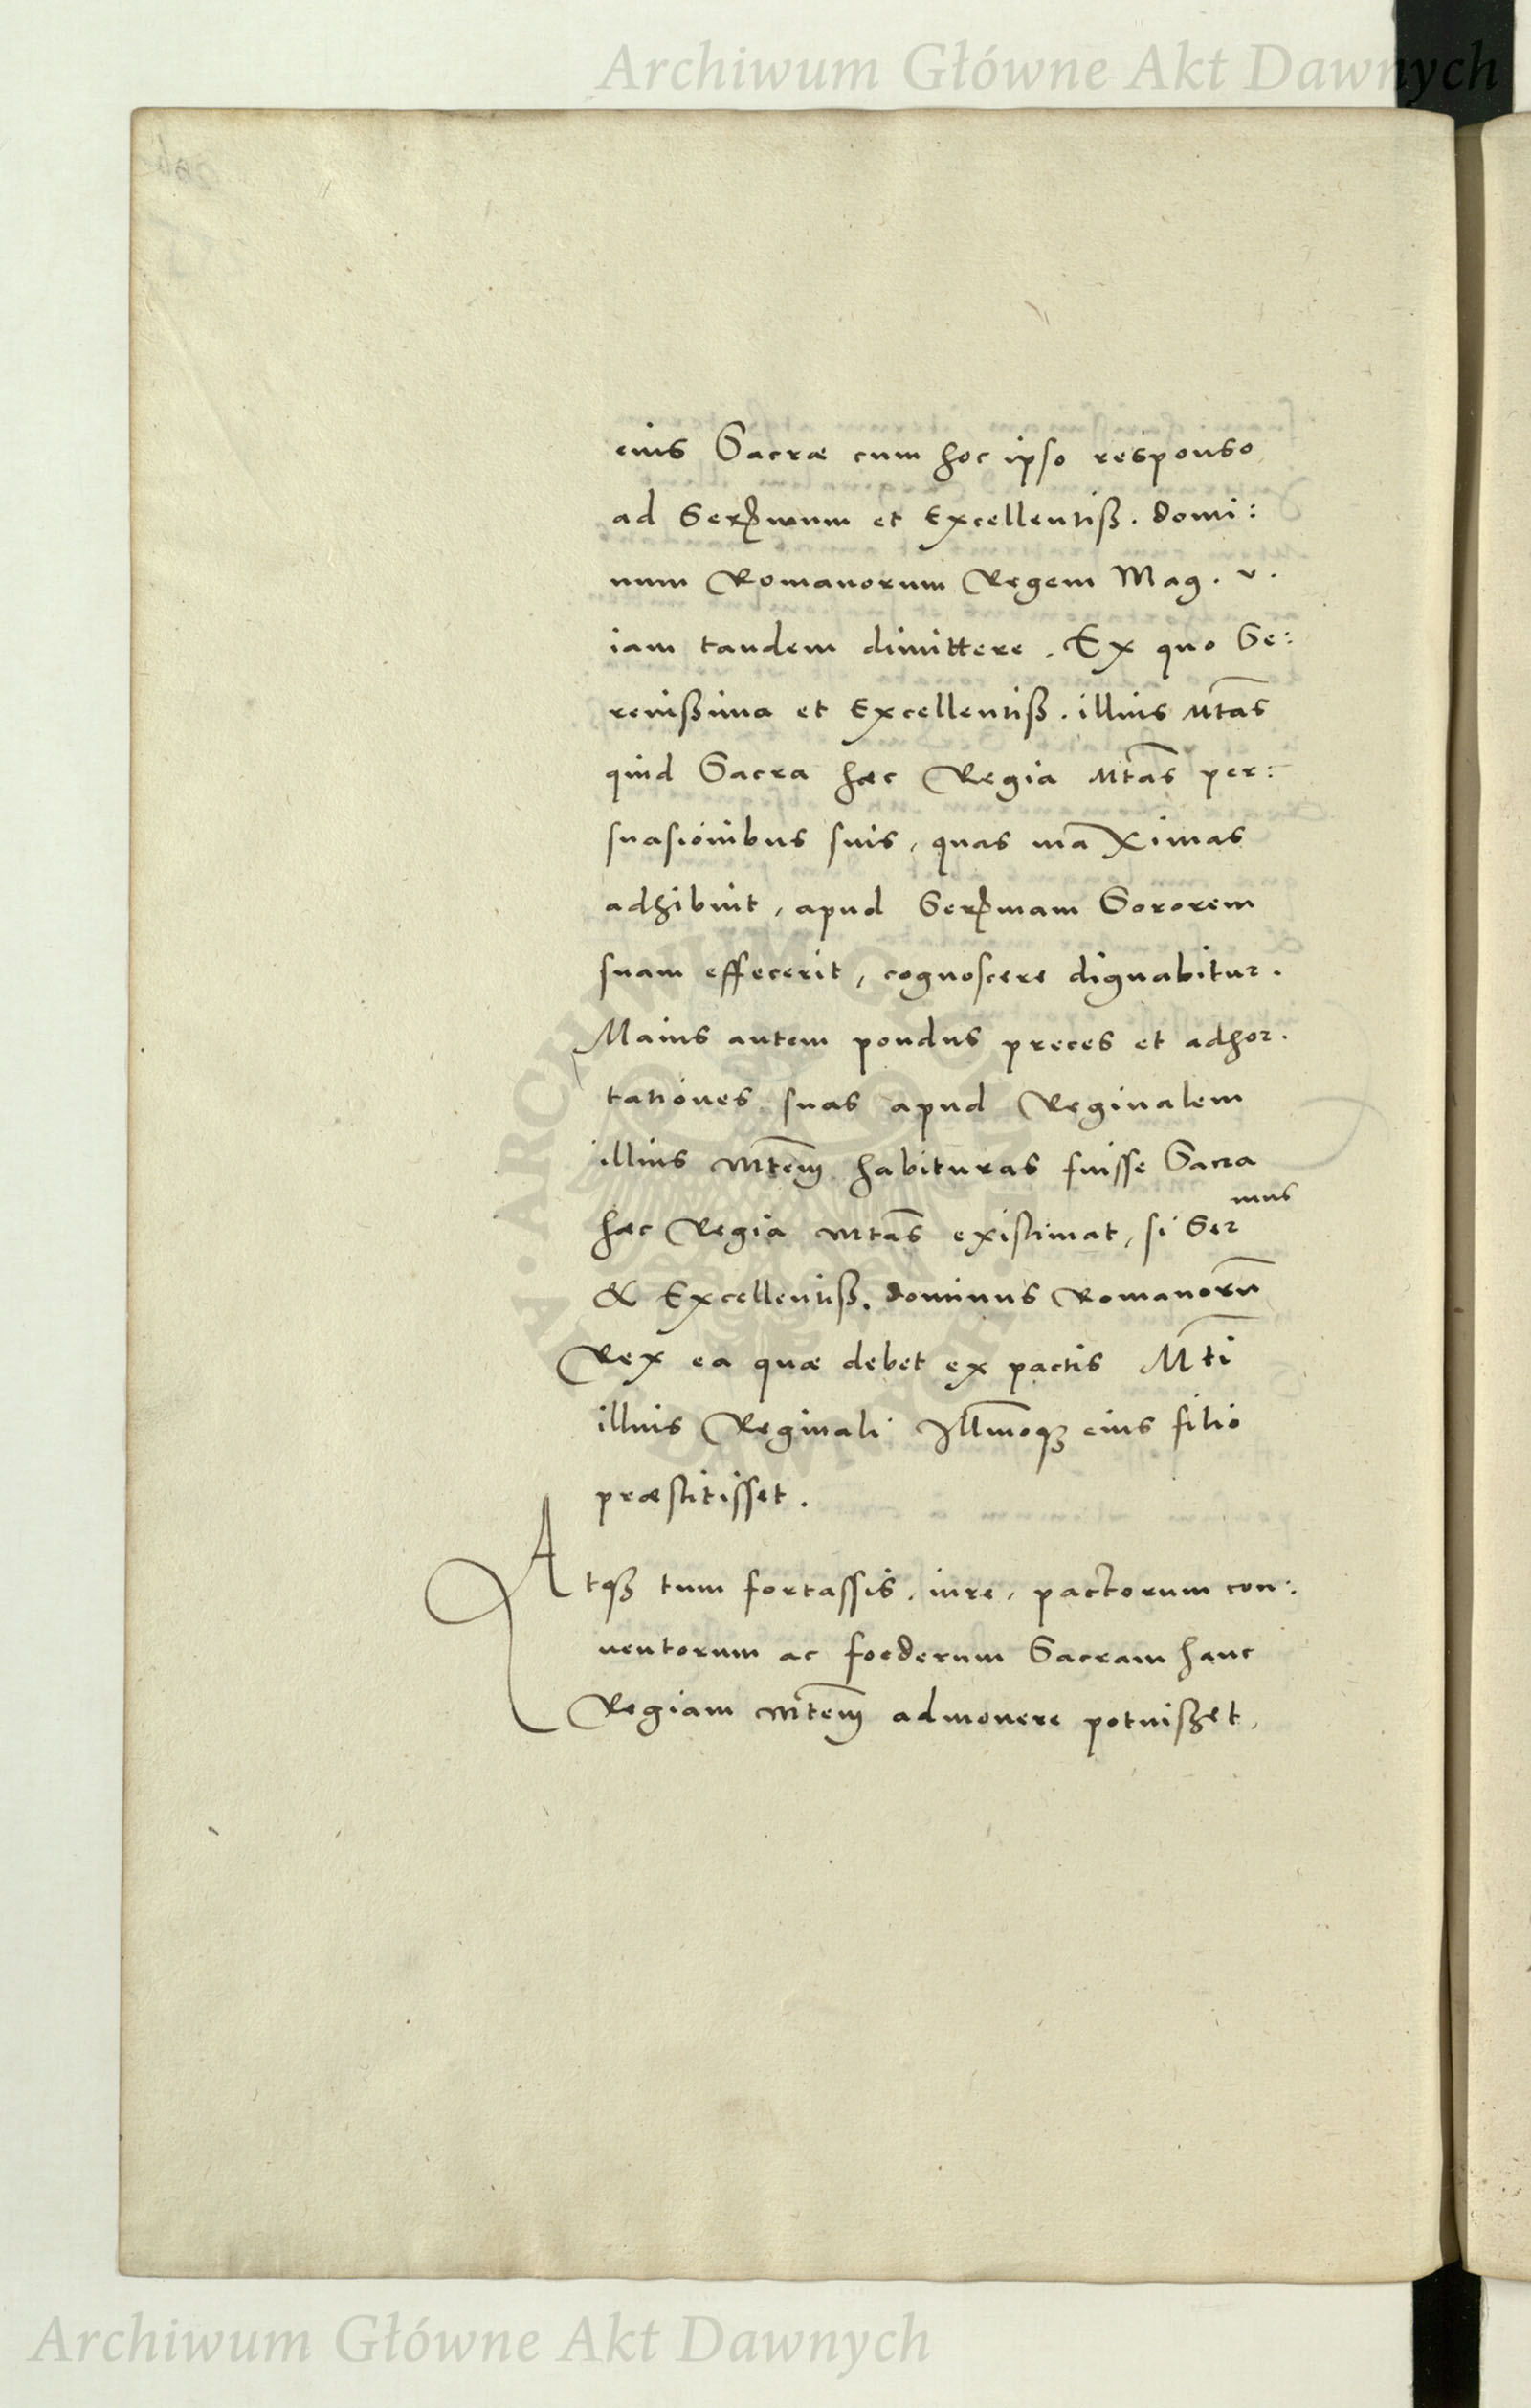 Archiwum Główne Akt Dawnych
eius Sacræ cum hoc ipso responso
ad Serꝑmum et Excellentiß. domi:
num Romanorum Regem Mag. v.
iam tandem dimittere. Ex quo Se:
renißima et Excellentiß. illius Mtas
quid Sacra hæc Regia Mtas per:
suasionibus suis, quas maximas
adhibuit, apud Serꝑmam Sororem
suam effecerit, cognoscere dignabitur.
Maius autem pondus preces et adhor.
tationes suas apud Reginalem
illius Mtem habituras fuisse Sacra
hæc Regia Mtas existimat, si Ser mus
& Excellentiß. dominus Romanorū
Rex ea quæ debet ex pactis Mti
illius Reginali Illmoqꝫ eius filio
præstitisset.
Atqꝫ tum fortassis, iure, pactorum con:
uentorum ac foederum Sacram hanc
Regiam Mtem admonere potuißet,
Archiwum Główne Akt Dawnych